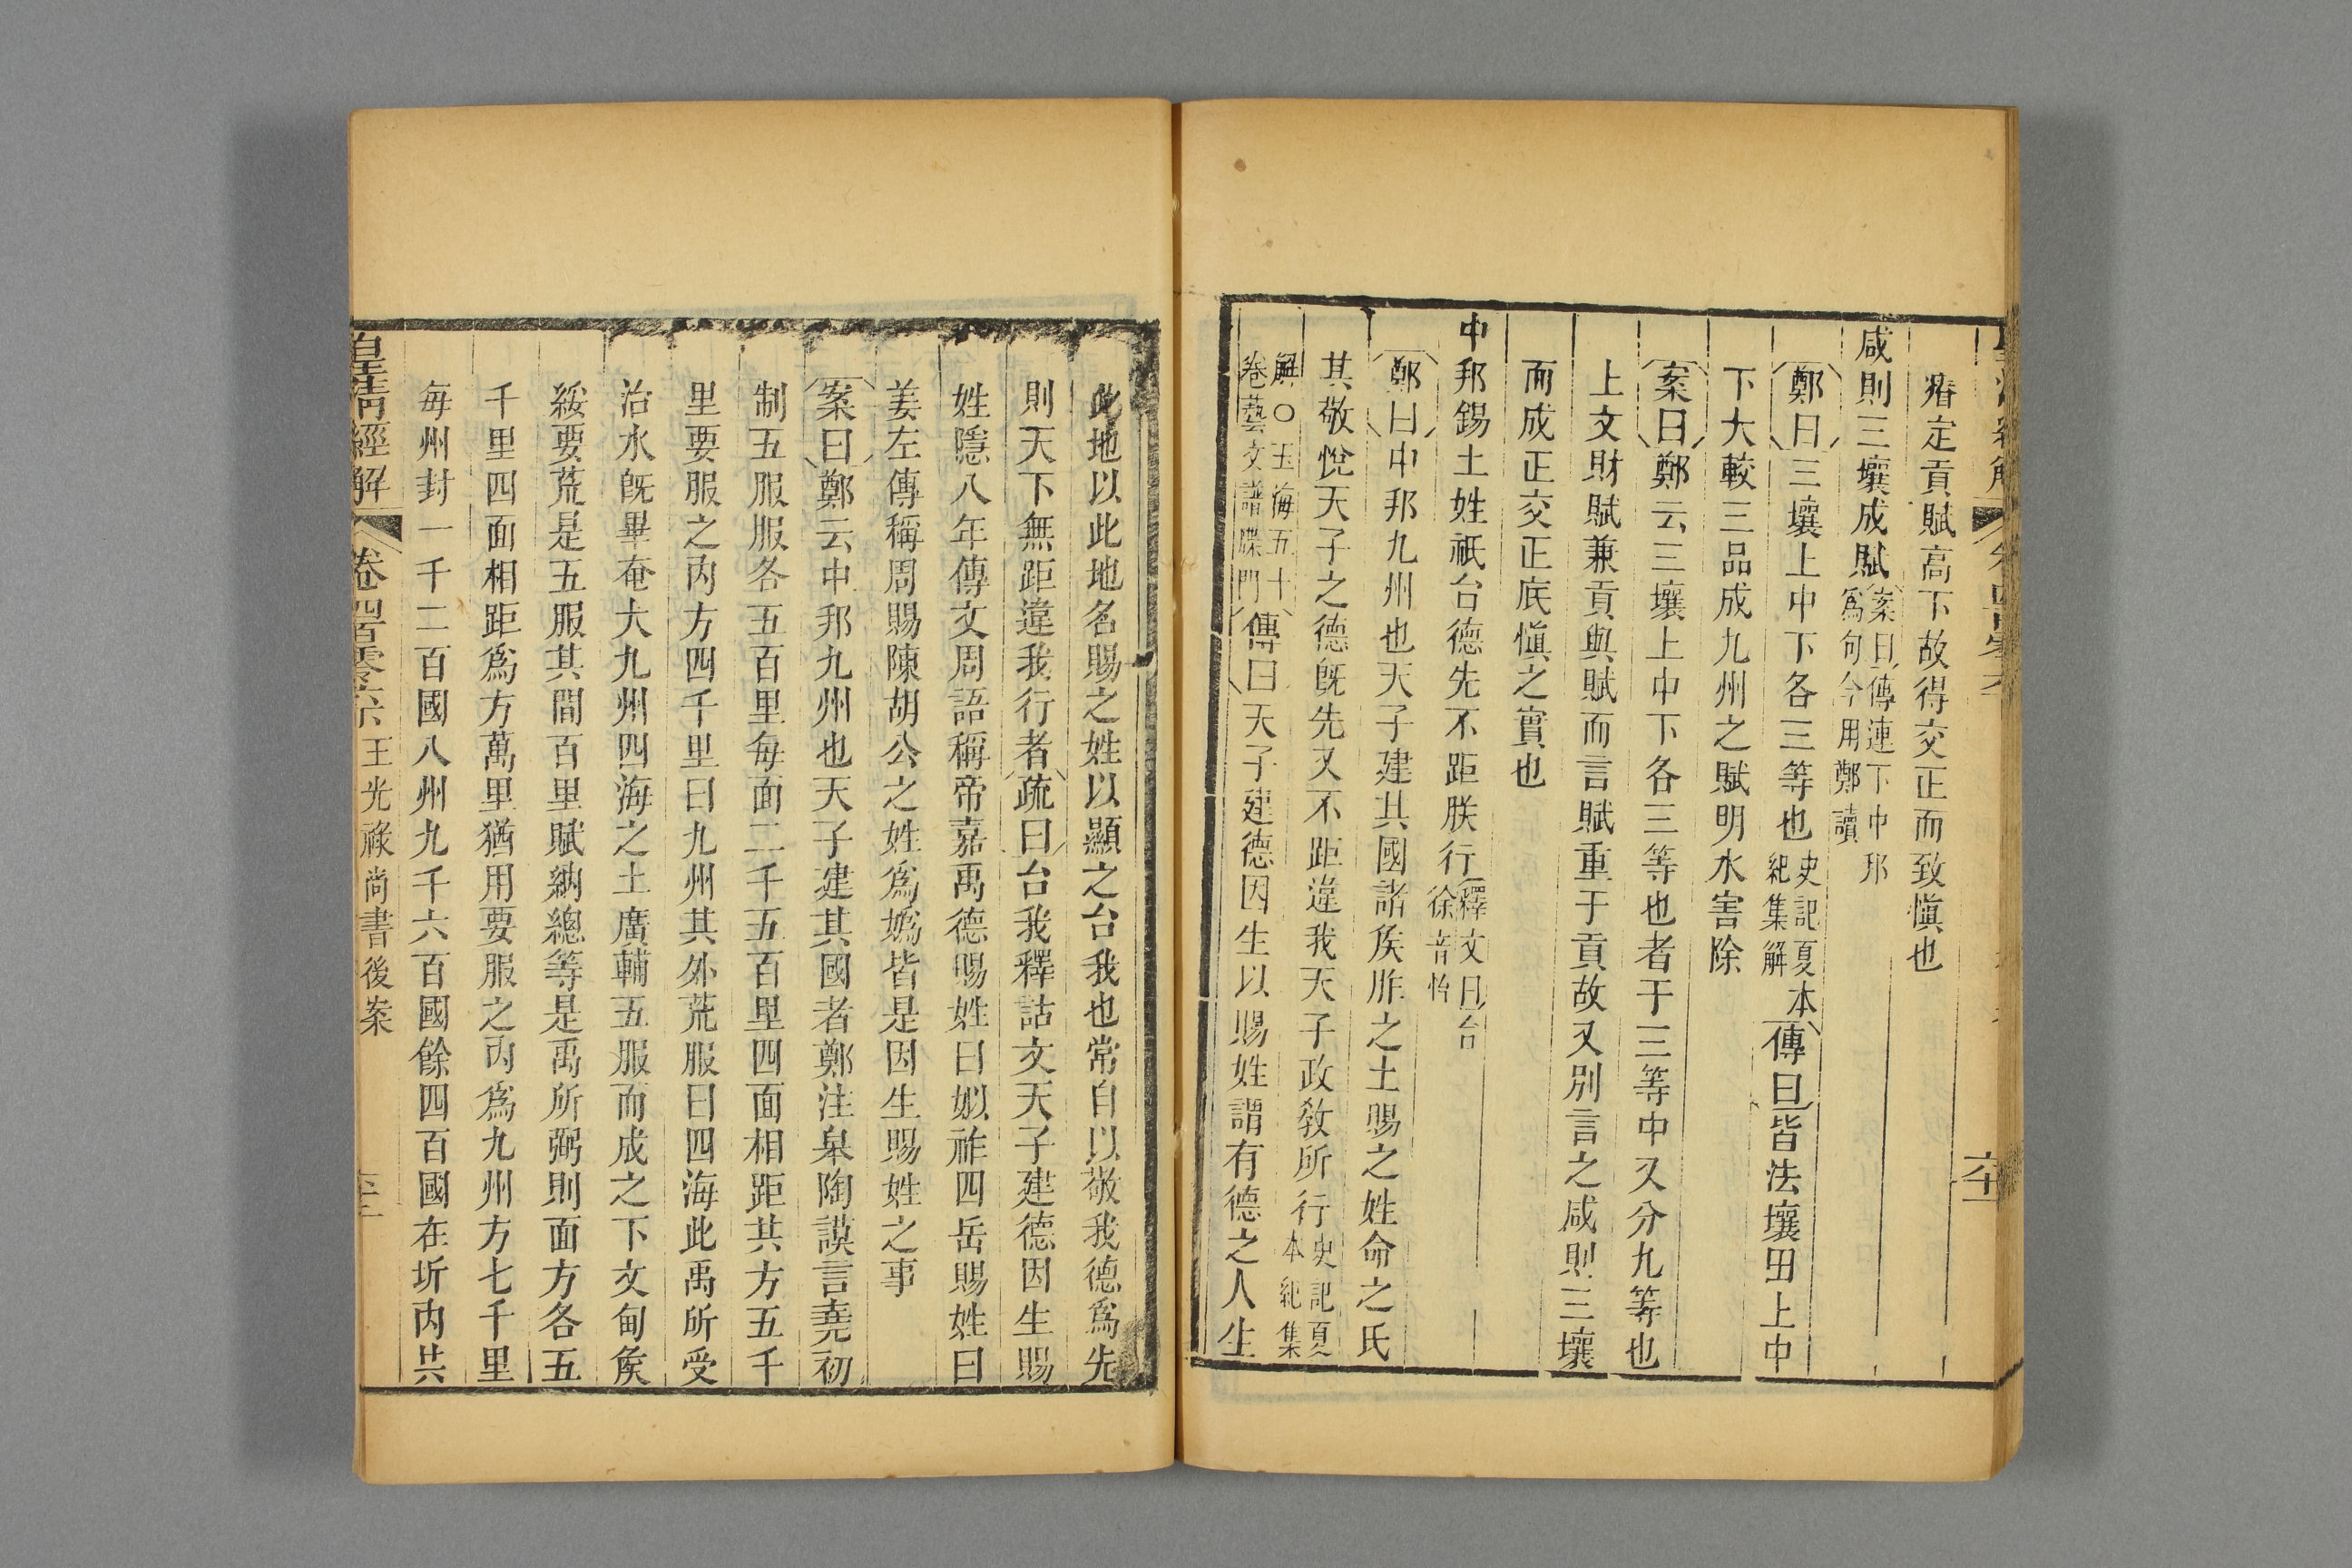 瘠定貢賦高下故得交正而致慎也
咸則三壤成賦案曰傳連下中邦爲句今用鄭讀
鄭曰三壤上中下各三等也史記夏本紀集解傳曰皆法壤田上中
下大較三品成九州之賦明水害除
案曰鄭云三壤上中下各三等也者于三等中又分九等也
上文財賦兼貢與賦而言賦重于貢故又別言之咸則三壤
而成正交正底慎之實也
中邦錫土姓祇台德先不距朕行釋文曰台徐音怡
鄭曰中邦九州也天子建其國諸矦胙之土賜之姓命之氏
其敬悅天子之德既先又不距違我天子政敎所行史記夏本紀集
解○玉海五十卷藝文譜牒門傳曰天子建德因生以賜姓謂有德之人生
此地以此地名賜之姓以顯之台我也常自以敬我德爲先
則天下無距違我行者疏曰台我釋詁文天子建德因生賜
姓隱八年傳文周語稱帝嘉禹德賜姓曰姒祚四岳賜姓曰
姜左傳稱周賜陳胡公之姓爲嬀皆是因生賜姓之事
案曰鄭云中邦九州也天子建其國者鄭注臯陶謨言堯初
制五服服各五百里每面二千五百里四面相距其方五千
里要服之內方四千里曰九州其外荒服曰四海此禹所受
治水既畢奄大九州四海之土廣輔五服而成之下文甸矦
綏要荒是五服其間百里賦納總等是禹所弼則面方各五
千里四面相距爲方萬里猶用要服之內爲九州方七千里
每州封一千二百國八州九千六百國餘四百國在圻內共
皇清經解 卷四百零六 王光祿尚書後案